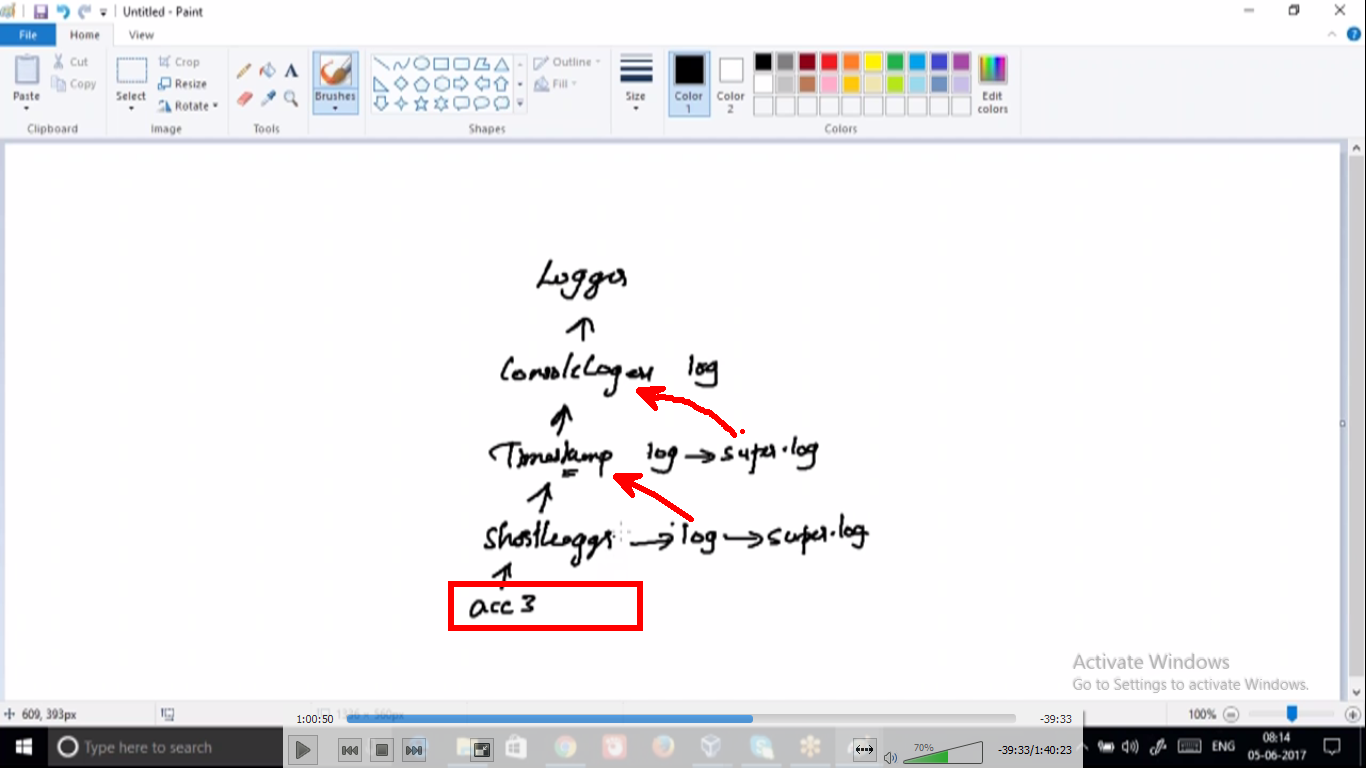 Untitled - Paint
File Home View
Paste Cut Copy Clipboard
Select Crop Resize Rotate Image
Tools
Brushes
Outline Fill Shapes
Size
Color 1 Color 2 Edit colors Colors
Logger
ConsoleLogger log
Timestamp log → super.log
ShortLoggr → log → super.log
acc 3
Activate Windows
Go to Settings to activate Windows.
609, 393px 1336 × 560px 100%
1:00:50 -39:33
Type here to search
70% -39:33/1:40:23
ENG 08:14
05-06-2017